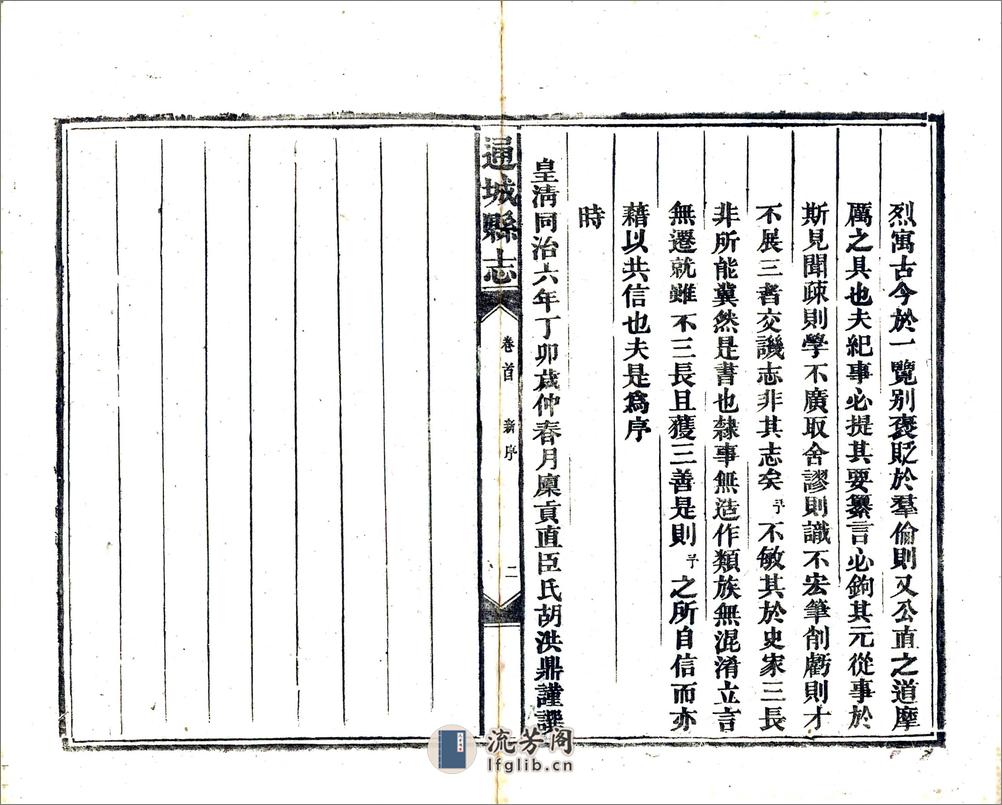 烈寓古今於一覽别褒貶於羣倫則又公直之道摩
厲之具也夫紀事必提其要纂言必鉤其元從事於
斯見聞疎則學不廣取舍謬則識不宏筆削虧則才
不展三者交譏志非其志矣予不敏其於史家三長
非所能冀然是書也隸事無造作類族無混淆立言
無遷就雖不三長且獲三善是則予之所自信而亦
藉以共信也夫是爲序
時
皇清同治六年丁卯歲仲春月廩貢直臣氏胡洪鼎謹譔
通城縣志
卷首
新序
二
流芳阁
lfglib.cn